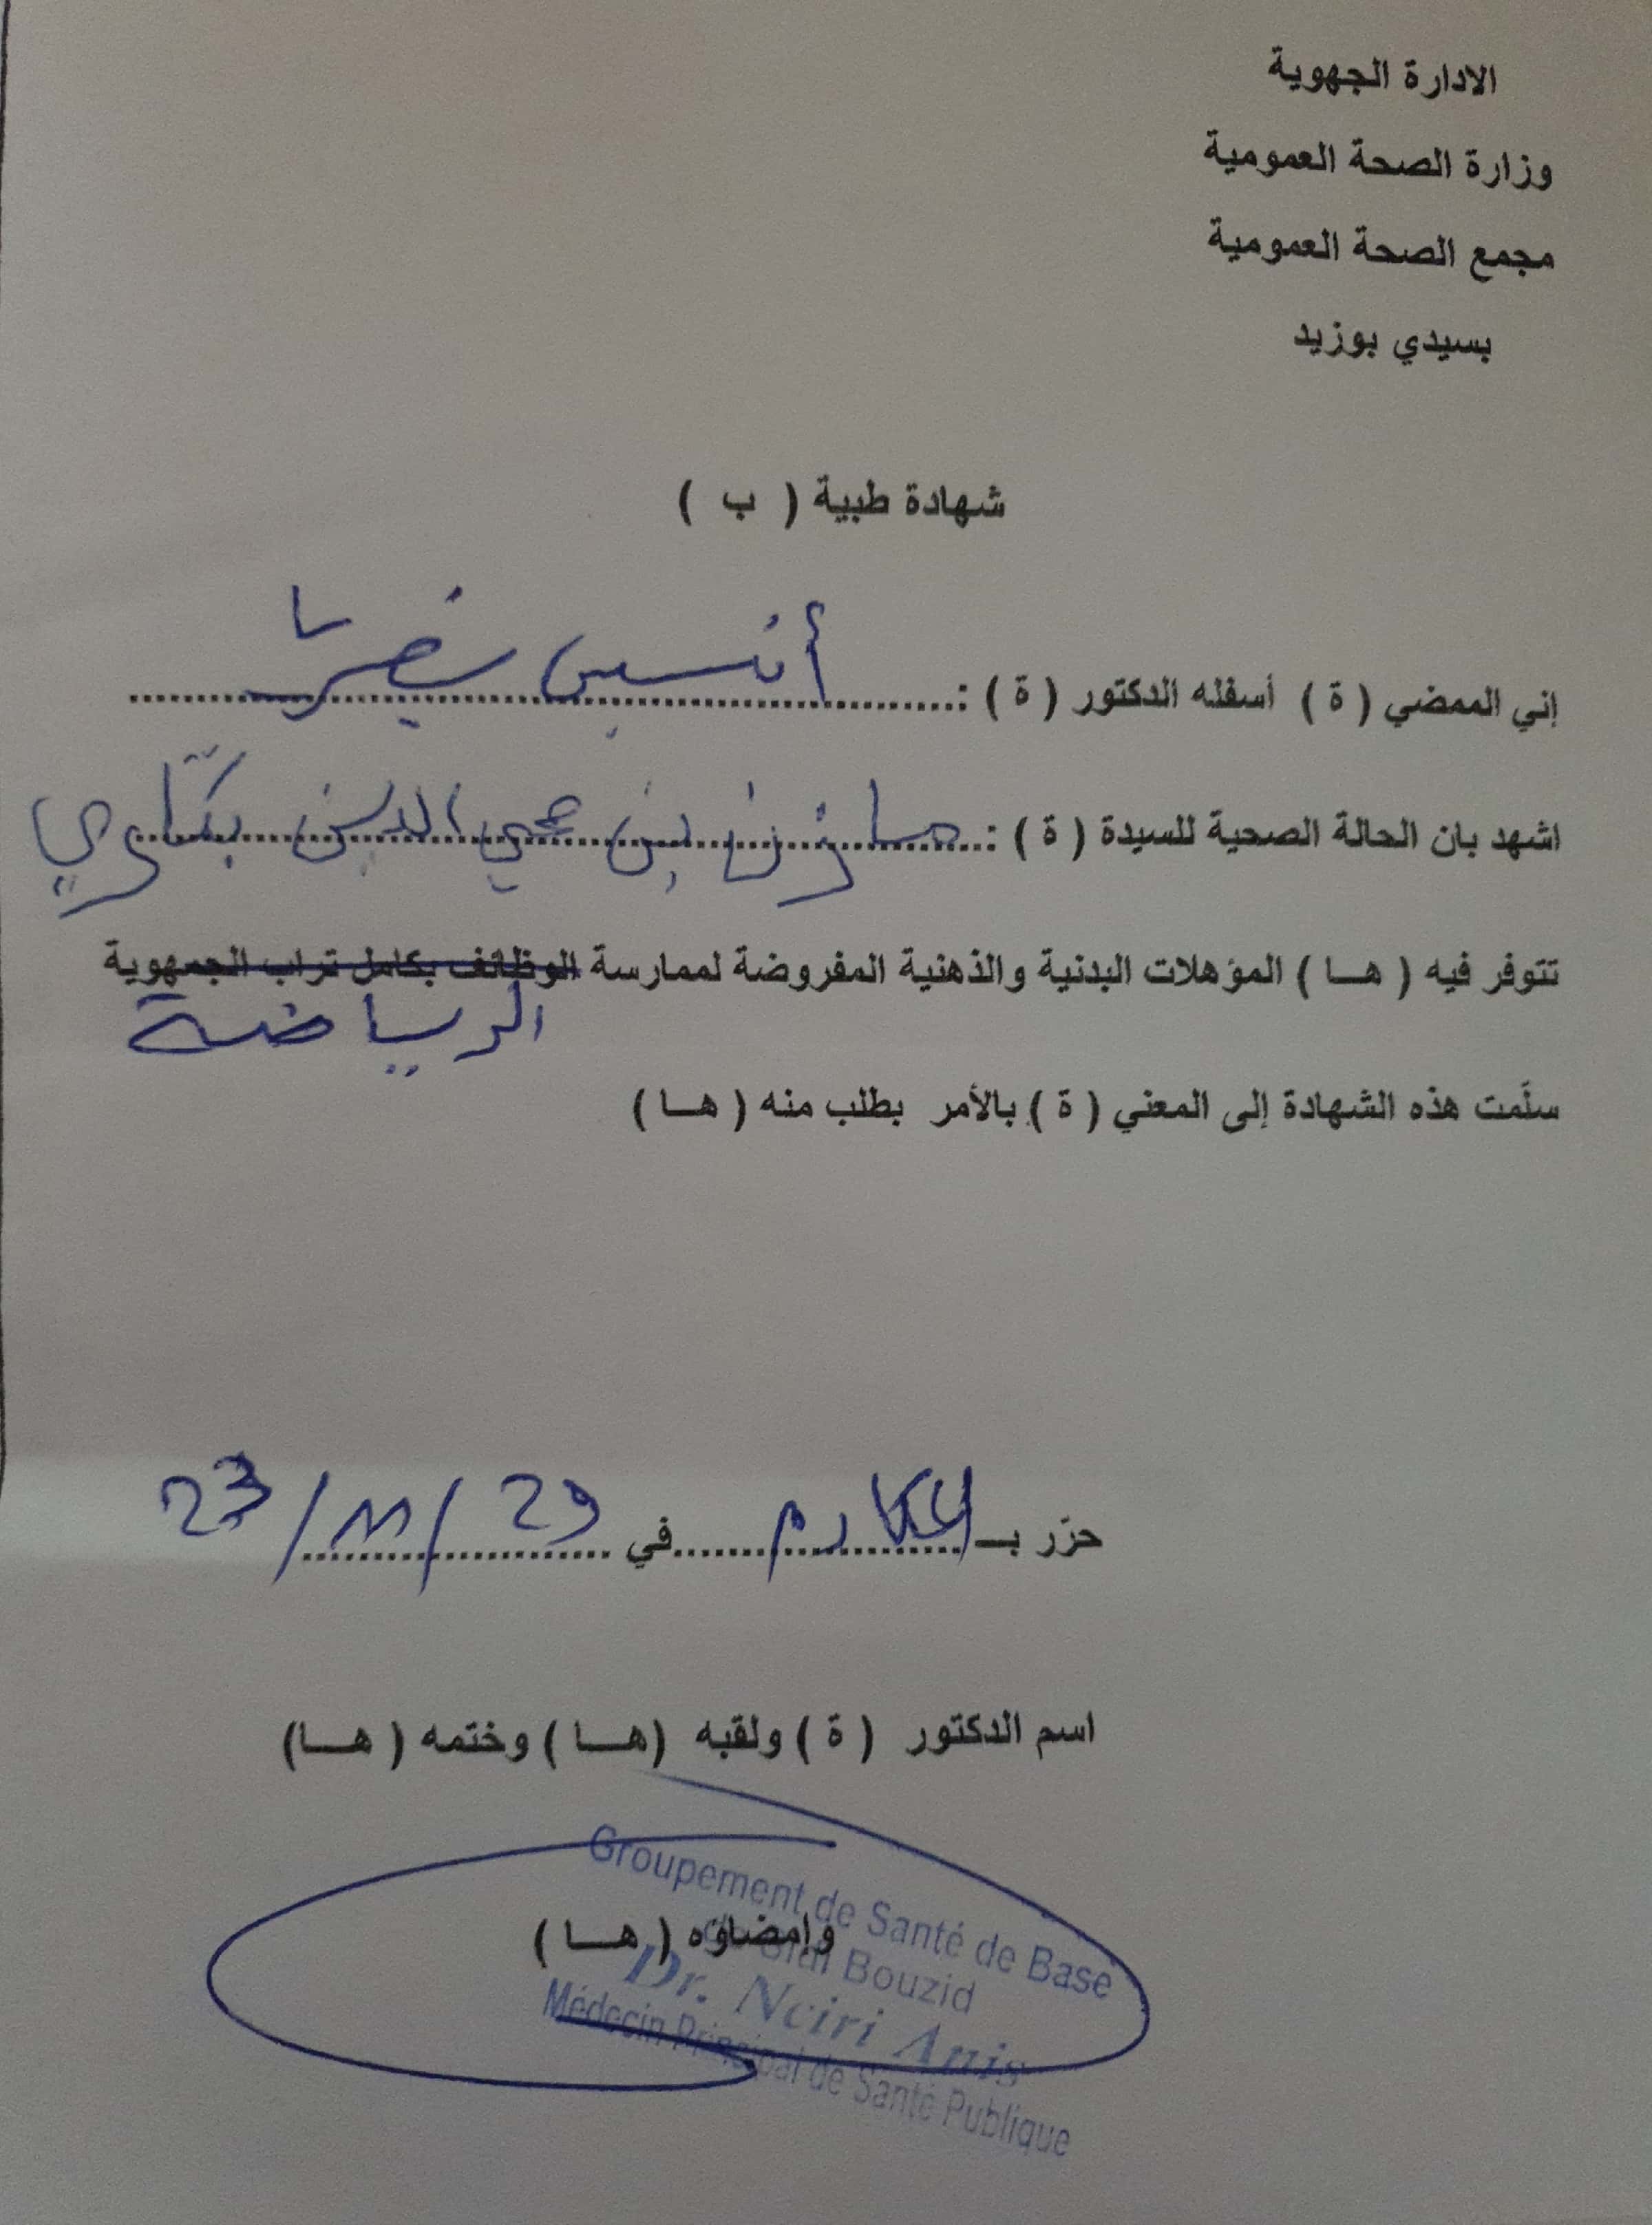 الادارة الجهوية
وزارة الصحة العمومية
مجمع الصحة العمومية
بسيدي بوزيد
شهادة طبية ( ب )
إني الممضي ( ة ) أسفله الدكتور ( ة ) : أنيس
اشهد بان الحالة الصحية للسيدة ( ة ) : مازن بن محي الدين بكاري
تتوفر فيه ( هـا ) المؤهلات البدنية والذهنية المفروضة لممارسة الوظائف بكامل تراب الجمهوية
الرياضة
سلّمت هذه الشهادة إلى المعني ( ة ) بالأمر بطلب منه ( هـا )
حرّر بـ المكارم في 29/11/23
اسم الدكتور ( ة ) ولقبه (هـا ) وختمه ( هـا)
Groupement de Santé de Base
وامضاؤه ( هـا )
Sidi Bouzid
Dr. Nciri Anis
Médecin Principal de Santé Publique